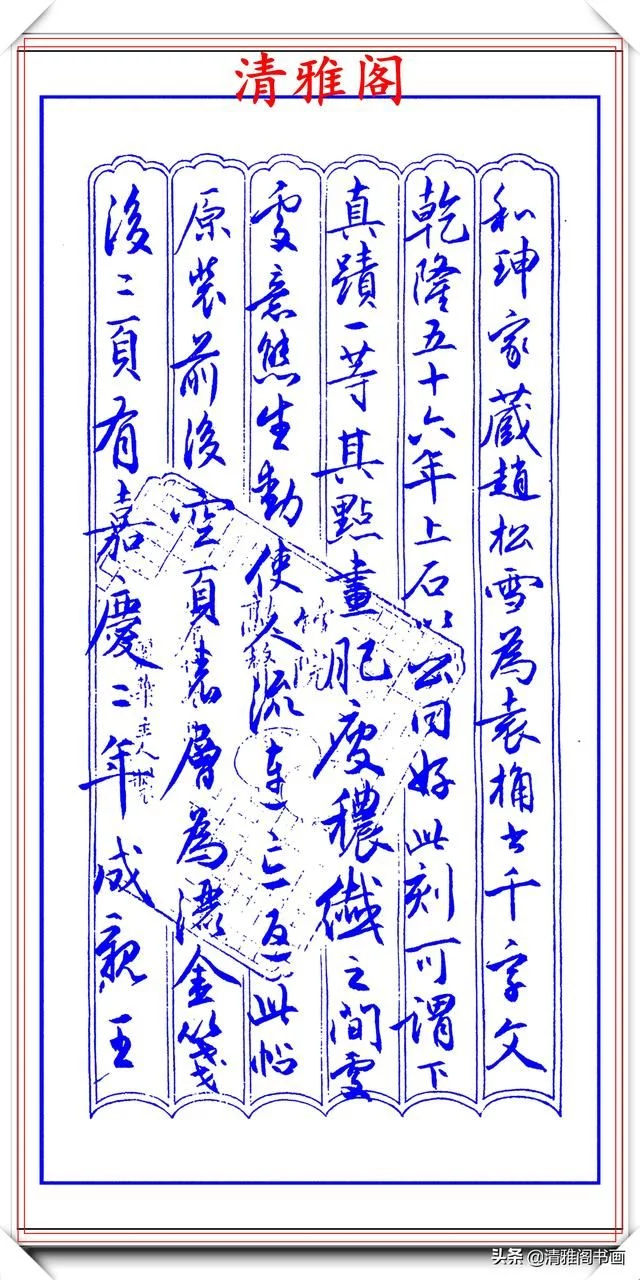 清雅阁
和珅家藏趙松雪為袁桷书千字文
乾隆五十六年上石以公同好此刻可謂下
真蹟一等其點畫肥瘦穠纖之间處
處意態生動使人流連忘返此帖
原裝前後空頁表層為灑金箋
後二頁有嘉慶二年成親王
主人
头条 @清雅阁书画